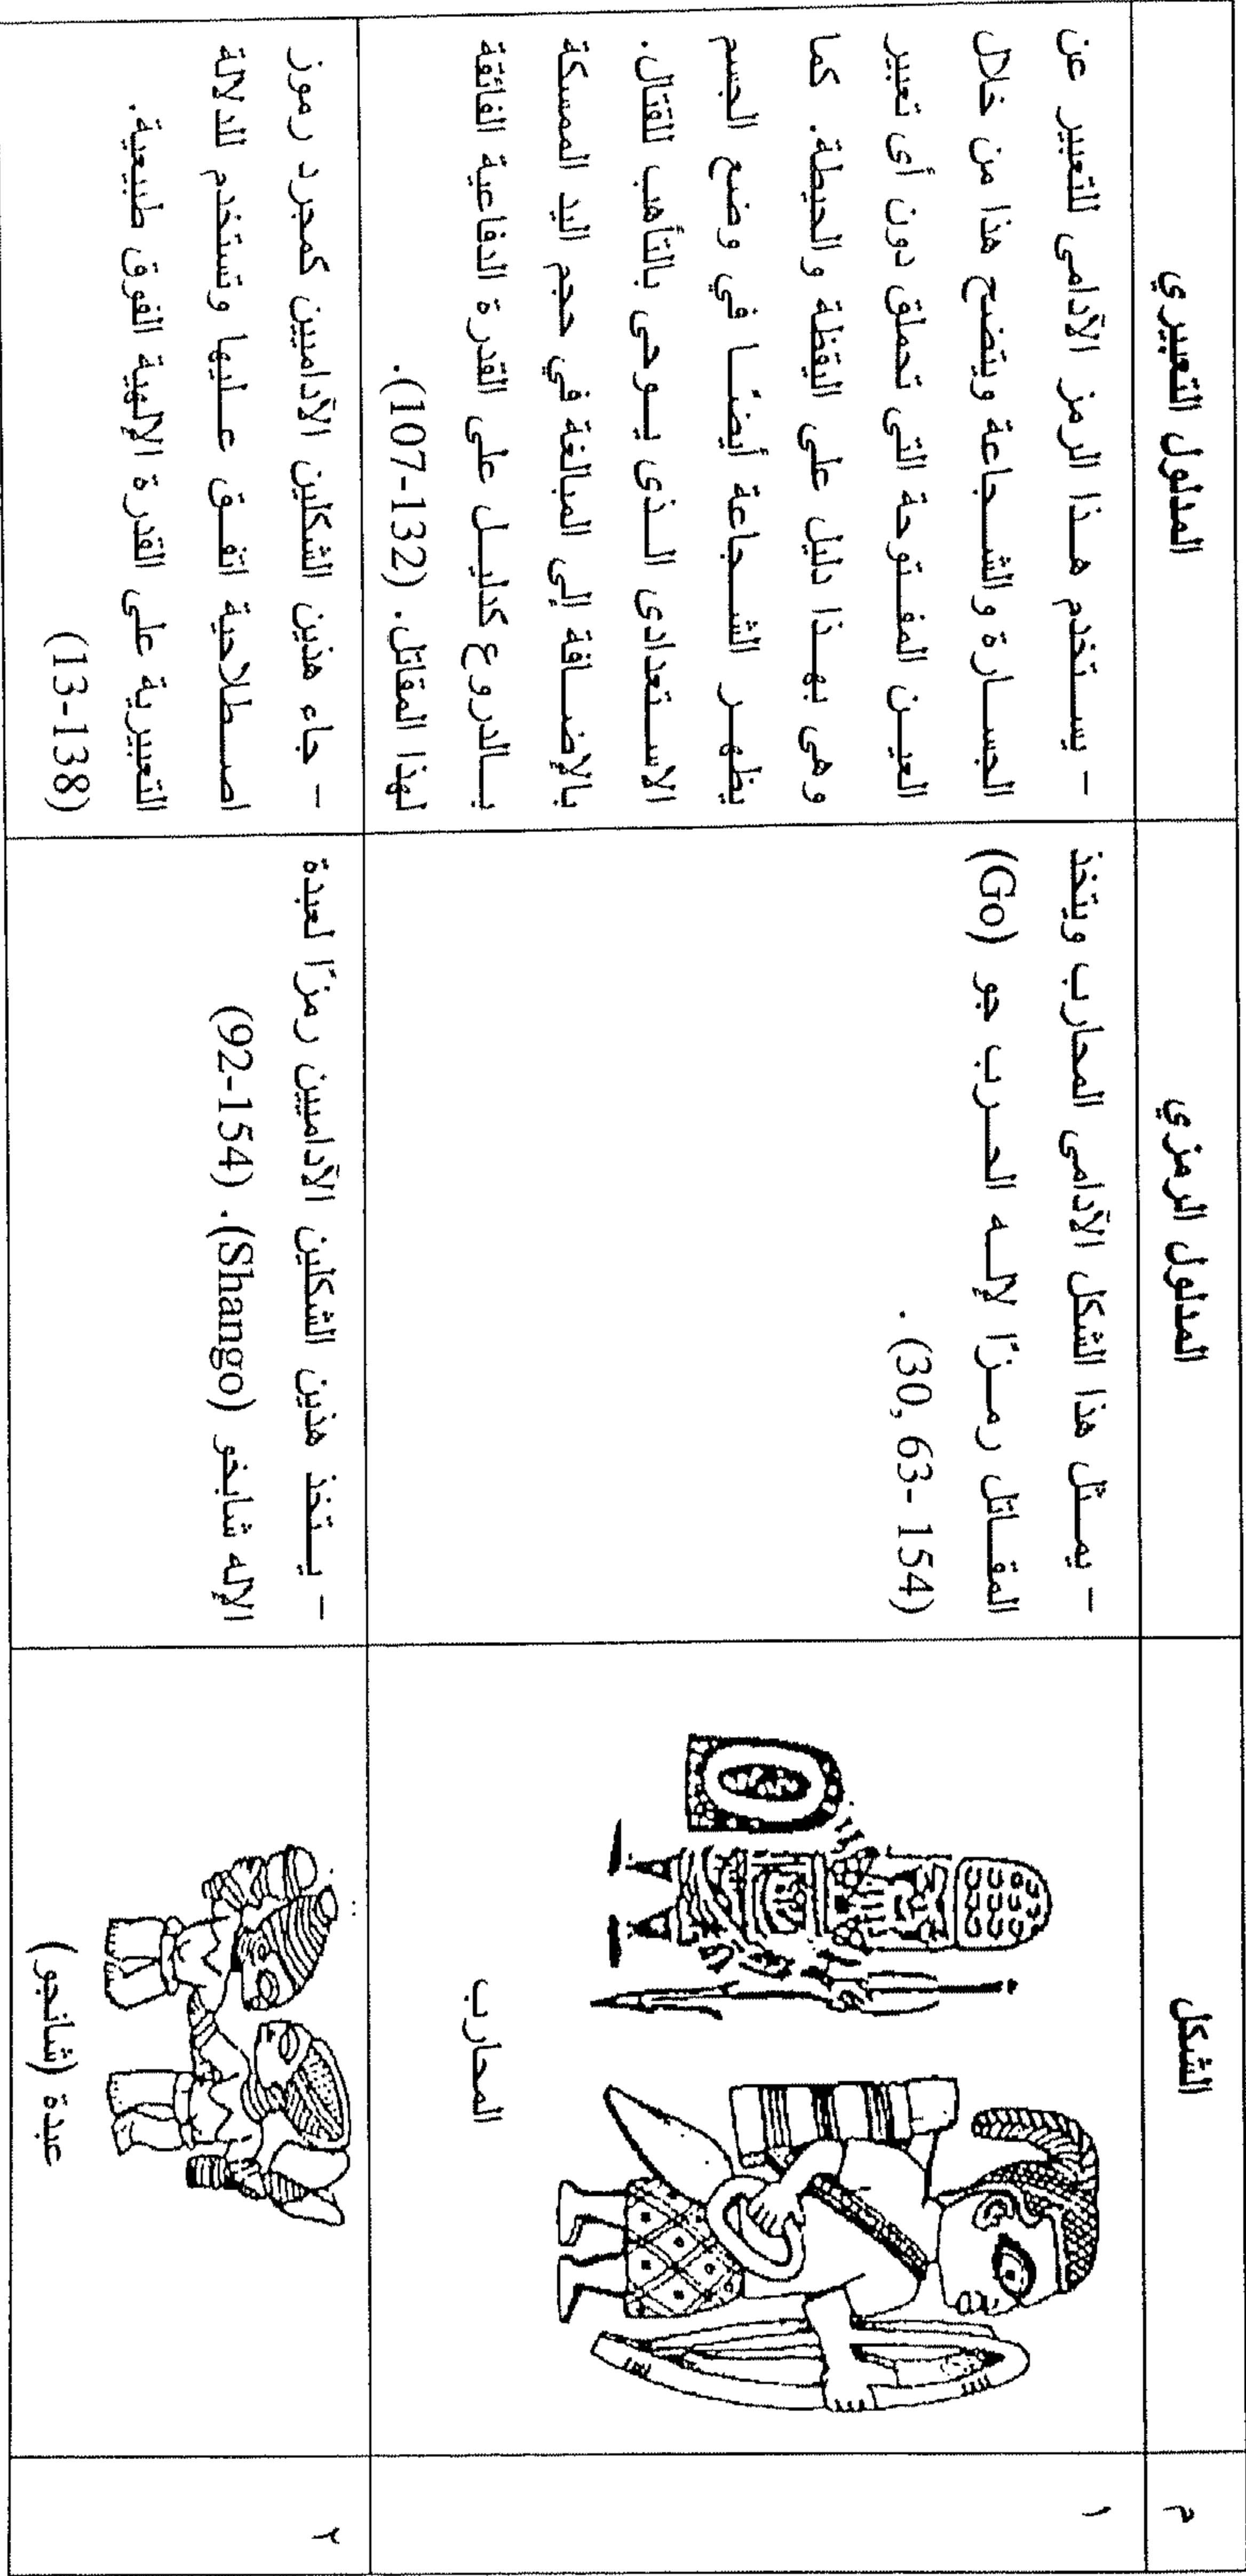 م
الشكل
المدلول الرمزي
المدلول التعبيري
١
المحارب
- يمثل هذا الشكل الآدامى المحارب ويتخذ
المقاتل رمزًا لإله الحرب جو (Go)
(30, 63- 154) .
- يستخدم هذا الرمز الآدامى للتعبير عن
الجسارة والشجاعة ويتضح هذا من خلال
العين المفتوحة التى تحملق دون أى تعبير
وهى بهذا دليل على اليقظة والحيطة. كما
يظهر الشجاعة أيضًا في وضع الجسم
الاستعدادى الذى يوحى بالتأهب للقتال.
بالإضافة إلى المبالغة في حجم اليد الممسكة
بالدروع كدليل على القدرة الدفاعية الفائقة
لهذا المقاتل. (107-132).
٢
عبدة (شانجو)
- يتخذ هذين الشكلين الآداميين رمزًا لعبدة
الإله شابخو (Shango). (92-154)
- جاء هذين الشكلين الآداميين كمجرد رموز
اصطلاحية اتفق عليها وتستخدم للدلالة
التعبيرية على القدرة الإلهية الفوق طبيعية.
(13-138)